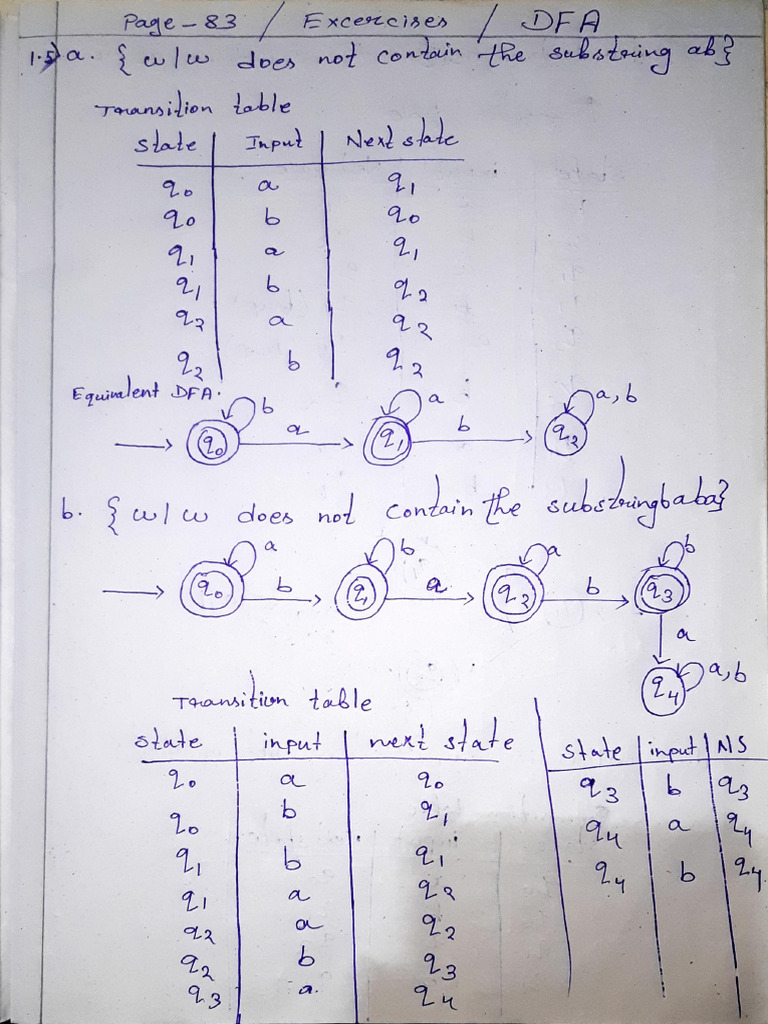 Page-83 / Excercises / DFA
1.5) a. { w/w does not contain the substring ab}
Transition table
State Input Next state
q0 a q1
q0 b q0
q1 a q1
q1 b q2
q2 a q2
q2 b q2
Equivalent DFA.
b a a, b
q0 a q1 b q2
b. { w/w does not contain the substring baba}
a b a b
q0 b q1 a q2 b q3
a
q4 a, b
Transition table
state input next state
q0 a q0
q0 b q1
q1 b q1
q1 a q2
q2 a q2
q2 b q3
q3 a. q4
state input NS
q3 b q3
q4 a q4
q4 b q4